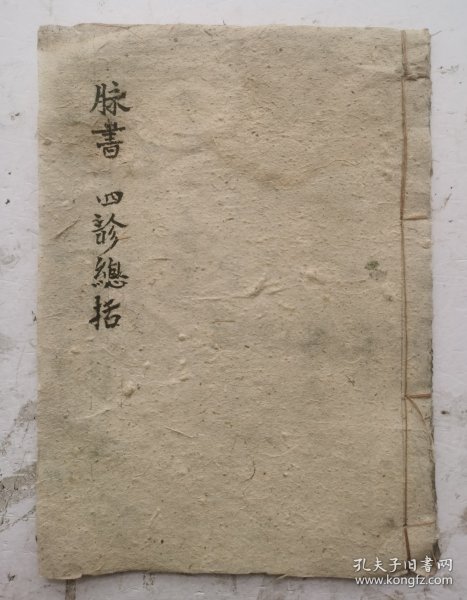 脉書 四診總括
孔夫子旧书网
www.kongfz.com